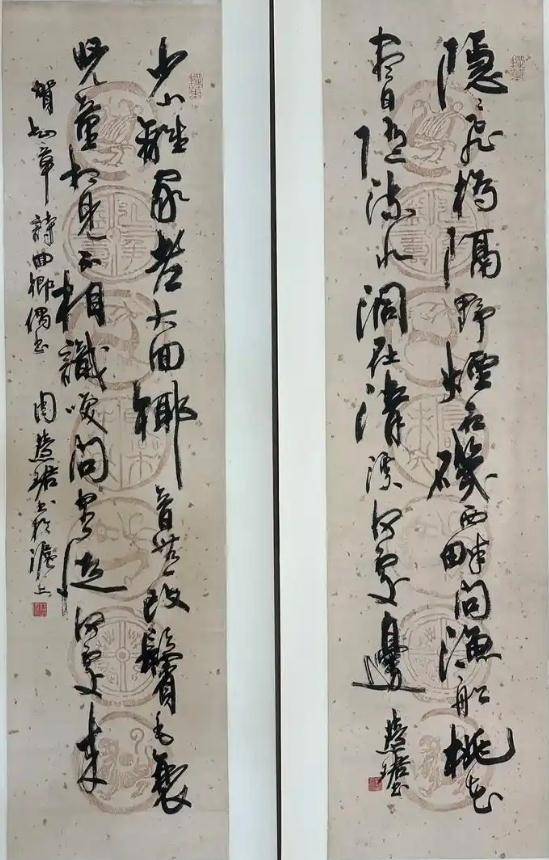 隱隱飛橋隔野煙石磯西畔問漁船桃花
盡日隨流水洞在清溪何處邊
慧珺書
少小離家老大回鄉音無改鬢毛衰
兒童相見不相識笑問客從何處來
賀知章詩回鄉偶書 周慧珺書於滬上